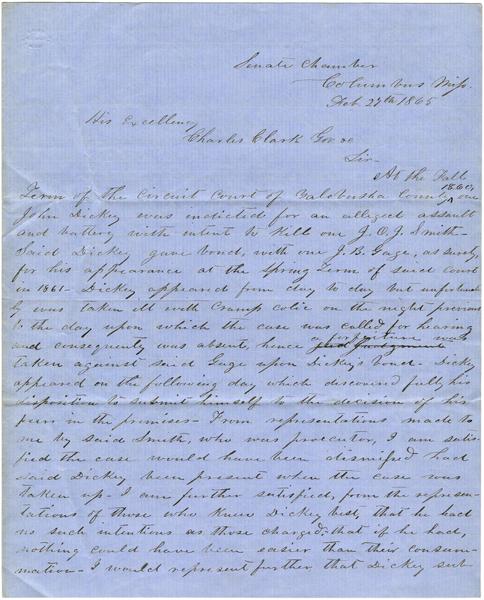 Senate Chamber
Columbus Miss.
Feb 27th 1865
His Excellency
Charles Clark Gov &c
Sir-
At the Fall
1860,
Term of the Circuit Court of Yalobusha County one
John Dickey was indicted for an alleged assault
and battery with intent to kill one J. O. J. Smith-
Said Dickey gave bond, with one J. B. Gage, as surety,
for his appearance at the Spring Term of said Court
in 1861- Dickey appeared from day to day but unfortunate-
ly was taken ill with Cramp colic on the night previous
to the day upon which the case was called for hearing
and consequently was absent, hence a forfeiture was
taken against said Gage upon Dickey's bond- Dickey
appeared on the following day which discovered fully his
disposition to submit himself to the decision of his
peers in the premises- From representations made to
me by said Smith, who was prosecutor, I am satis-
fied the case would have been dismissed had
said Dickey been present when the case was
taken up- I am further satisfied, from the represen-
tations of those who knew Dickey best, that he had
no such intentions as those charged; that if he had,
nothing could have been easier than their consum-
mation- I would represent further, that Dickey sub-